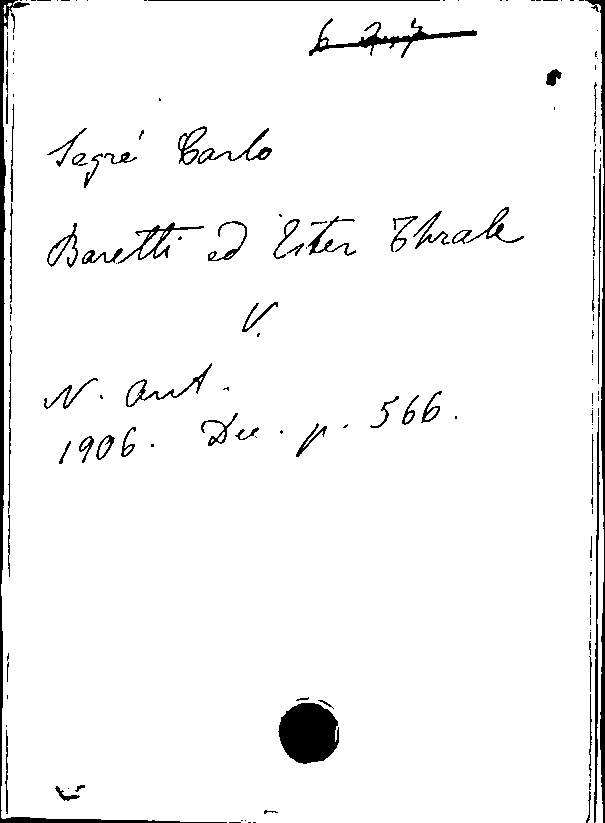 Segré Carlo
Baretti ed Ester Thrale
V.
N. ant.
1906. Dec. p. 566.